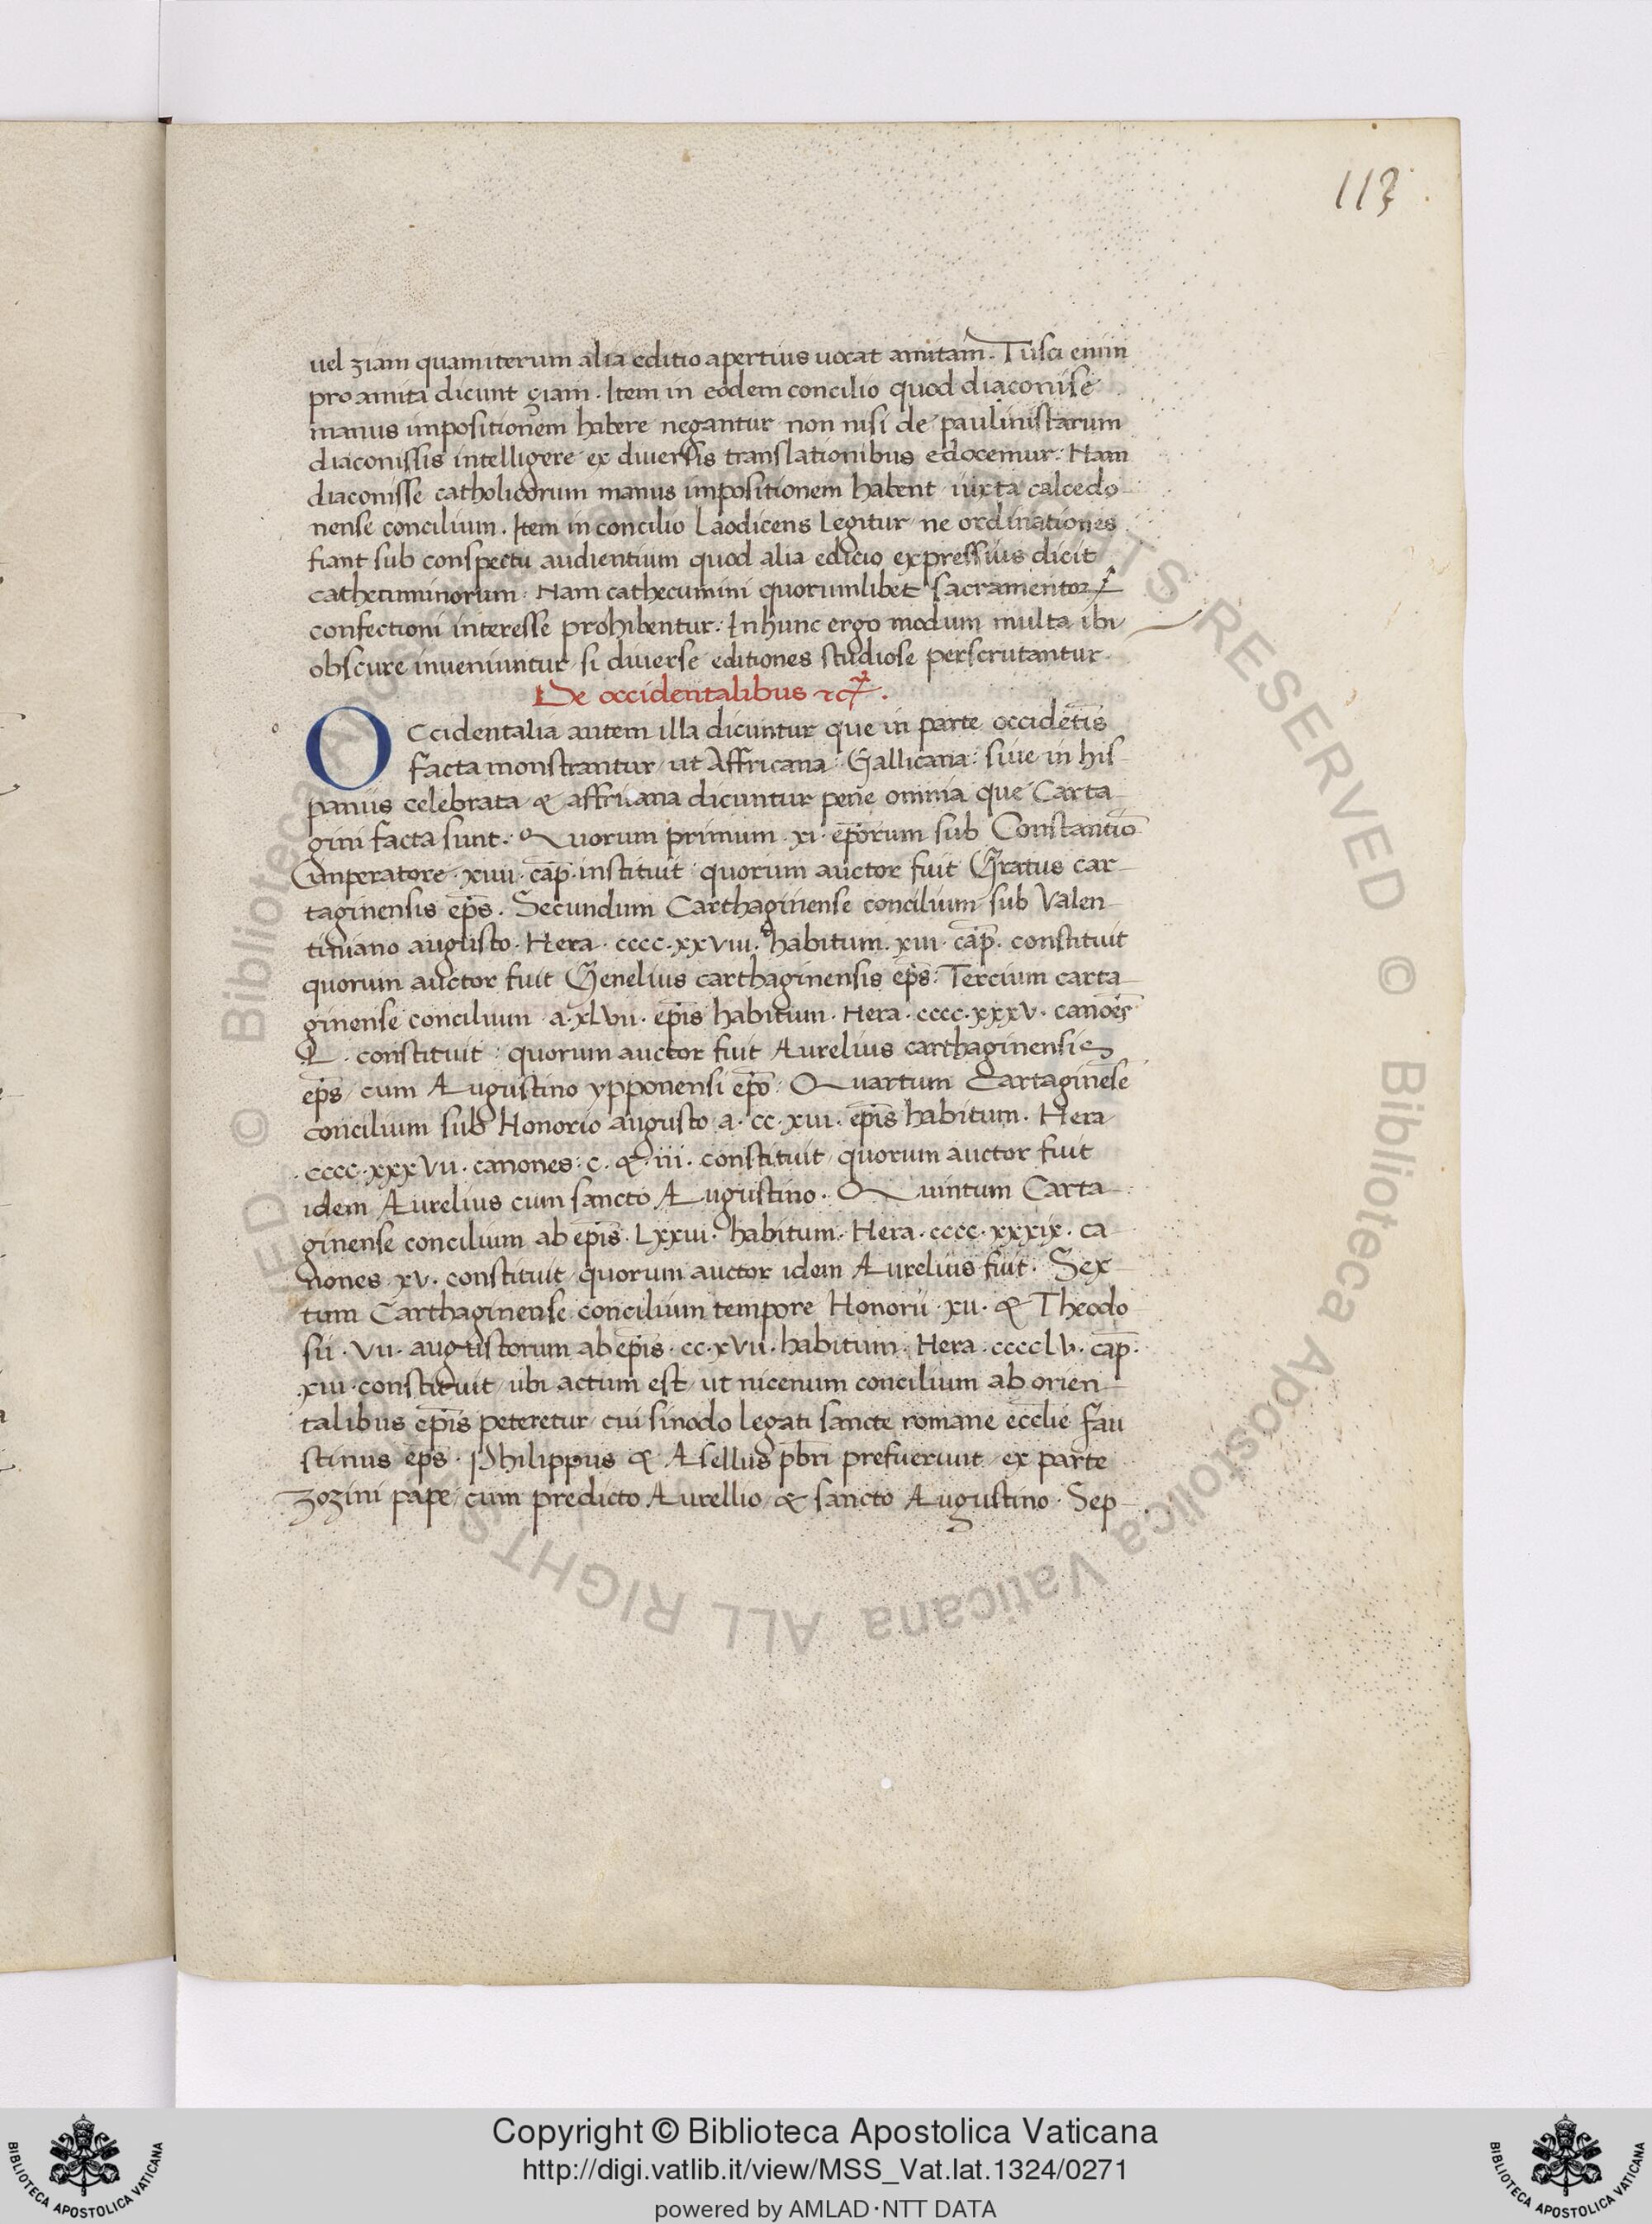 113
uel ziam quam iterum alia editio apertius uocat amitam. Tusci enim
pro amita dicunt çiam. Item in eodem concilio quod diaconise
manus impositionem habere negantur non nisi de paulinistarum
diaconissis intelligere ex diuersis translationibus edocemur. Nam
diaconisse catholicorum manus impositionem habent iuxta calcedo
nense concilium. Item in concilio Laodicens Legitur ne ordinationes
fiant sub conspectu audientium quod alia edicio expressius dicit
cathecuminorum. Nam cathecumini quorumlibet sacramentoꝝ
confectioni interesse prohibentur. In hunc ergo modum multa ibi
obscure inueniuntur si diuerse editiones studiose perscrutantur.
De occidentalibus
OCcidentalia autem illa dicuntur que in parte occidētis
facta monstrantur ut Affricana. Gallicana: siue in his
paniis celebrata & affricana dicuntur pene omnia que Carta
gini facta sunt. Quorum primum .xi. ep̄orum sub Constantio
imperatore .xiiii. cap̄. instituit quorum auctor fuit Gratus car
taginensis ep̄s. Secundum Carthaginense concilium sub Valen
tiniano augusto. Hera .cccc.xxviii. habitum .xiii. cap̄. constituit
quorum auctor fuit Genelius carthaginensis ep̄s: Tercium carta
ginense concilium .a.xlvii. ep̄is habitum. Hera .cccc.xxxv. canōes
L. constituit: quorum auctor fuit Aurelius carthaginensis
ep̄s cum Augustino ypponensi ep̄o. Quartum Cartaginēse
concilium sub Honorio augusto a.cc.xiii. ep̄is habitum. Hera
.cccc.xxxvii. canones: c. & .iii. constituit quorum auctor fuit
idem Aurelius cum sancto Augustino. Quintum Carta
ginense concilium ab ep̄is. Lxxiii. habitum. Hera .cccc.xxxix. ca
nones xv. constituit quorum auctor idem Aurelius fuit. Sex
tum Carthaginense concilium tempore Honorii .xii. & Theodo
sii .vii. augustorum ab ep̄is .cc.xvii. habitum. Hera .cccclv. cap̄.
.xiii. constituit ubi actum est ut nicenum concilium ab orien
talibus ep̄is peteretur cui sinodo legati sancte romane eccl̄ie Fau
stinus ep̄s. Philippus & Asellus pb̄ri prefuerunt ex parte
zozini pape cum predicto Aurellio & sancto Augustino. Sep
Copyright © Biblioteca Apostolica Vaticana
http://digi.vatlib.it/view/MSS_Vat.lat.1324/0271
powered by AMLAD·NTT DATA
© Biblioteca Apostolica Vaticana ALL RIGHTS RESERVED
BIBLIOTECA APOSTOLICA VATICANA
BIBLIOTECA APOSTOLICA VATICANA